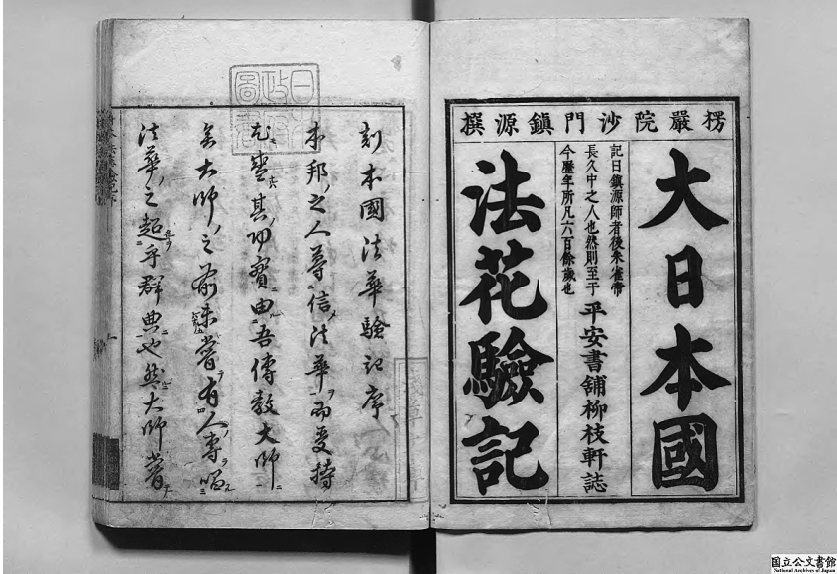 楞嚴院沙門鎮源撰
大日本國
記曰鎮源師者後朱雀帝
長久中之人也然則至于
今歷年所凡六百餘歲也
平安書舗柳枝軒誌
法花驗記
刻本國法華驗記序
本邦之人尊信法華而受持
尤盛其功實由吾傳教大師
矣大師之前未嘗有人專唱
法華之超乎群典也然大師嘗
日本政府圖書
国立公文書館
National Archives of Japan